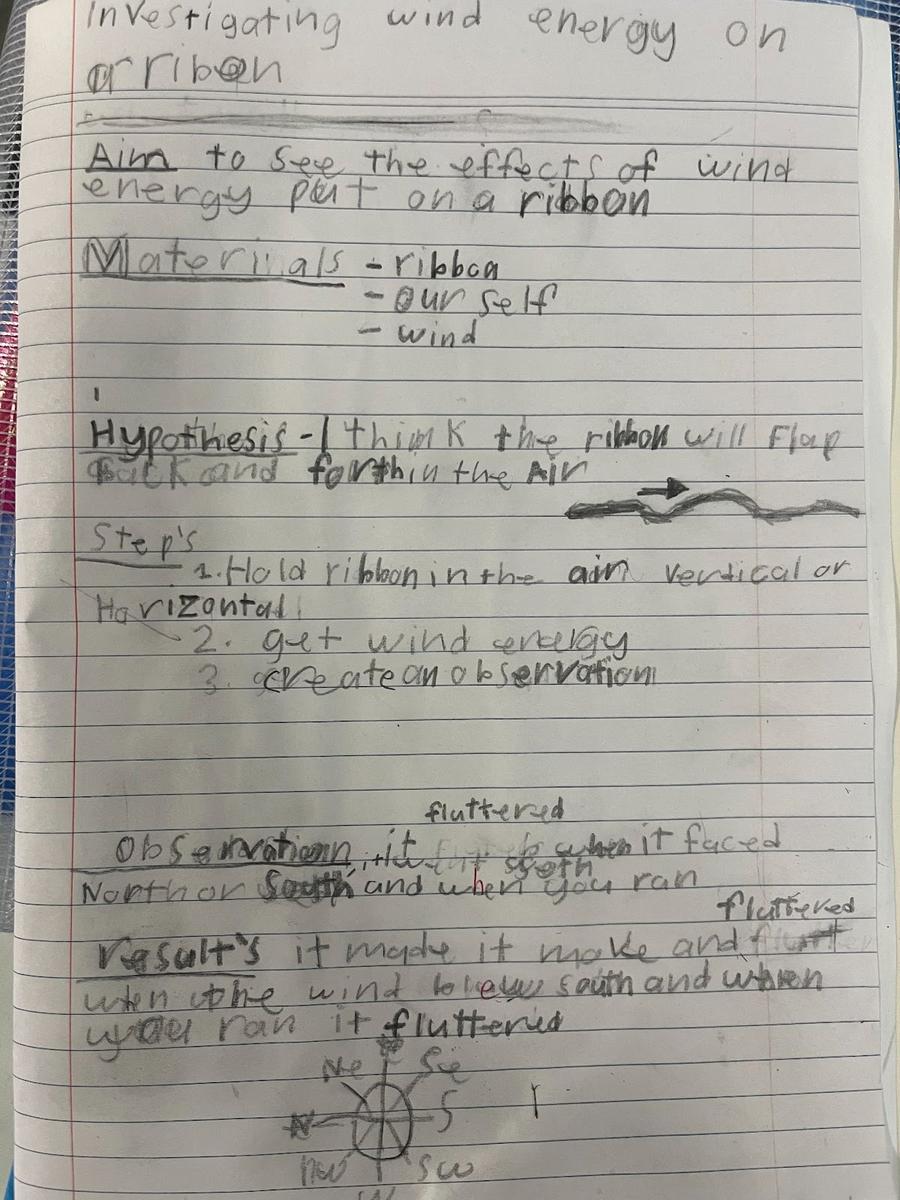 Investigating wind energy on
a ribbon
Aim to see the effects of wind
energy put on a ribbon
Materials - ribbon
- our self
- wind
Hypothesis - I think the ribbon will Flap
back and forth in the Air
Step's
1. Hold ribbon in the air vertical or
Horizontal
2. get wind energy
3. create an observation
fluttered
Observation it when it faced
North or South and when you ran
fluttered
result's it made it make and
when the wind blew south and when
you ran it fluttered
Ne Se
N S
nw sw
W